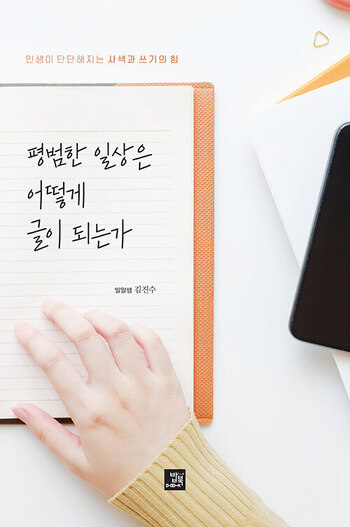 인생이 단단해지는 사색과 쓰기의 힘
평범한 일상은
어떻게
글이 되는가
밀알샘 김진수